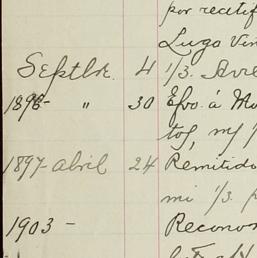 por rectif
Lugo Vin
Septbre. 4 1/3.
1896- " 30 Efvo. á Mo
tos, m/
1897- abril 24 Remitido
mi 1/3. p
1903 - Reconoc